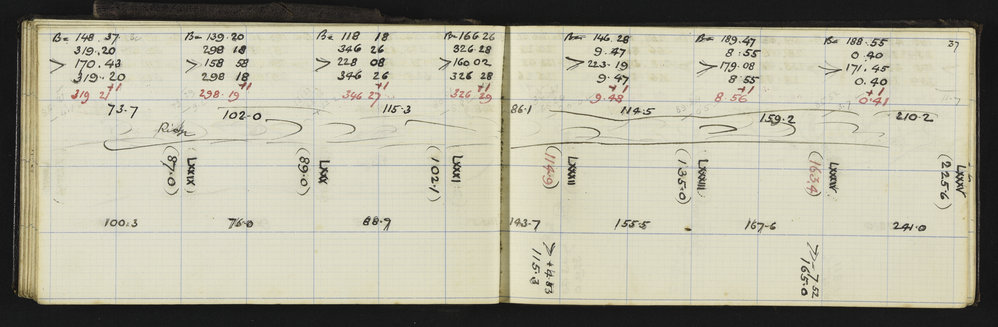 37
B= 148.37 B= 139.20 B= 118 18 B= 166 26 B= 146.28 B= 189.47 B= 188.55
319.20 298 18 346 26 326.28 9.47 8.55 0.40
> 170.43 > 158 58 > 228 08 > 160 02 > 223.19 > 179.08 > 171.45
319.20 298 18 346 26 326 28 9.47 8.55 0.40
+1 +1 +1 +1 +1 +1 +1
319 21 298.19 346 27 326 29 9.48 8.56 0.41
73.7 102.0 115.3 86.1 114.5 159.2 210.2
LXXIX LXXX LXXXI LXXXII LXXXIII LXXXIV LXXXV
(87.0) (89.0) (102.1) (114.9) (135.0) (163.4) (225.6)
100.3 76.0 88.9 143.7 155.5 167.6 241.0
> +4.83 > -7.52
115.3 165.0